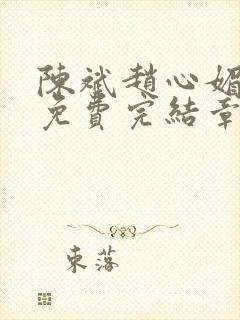 陳斌趙心媚
免費完結章
東落